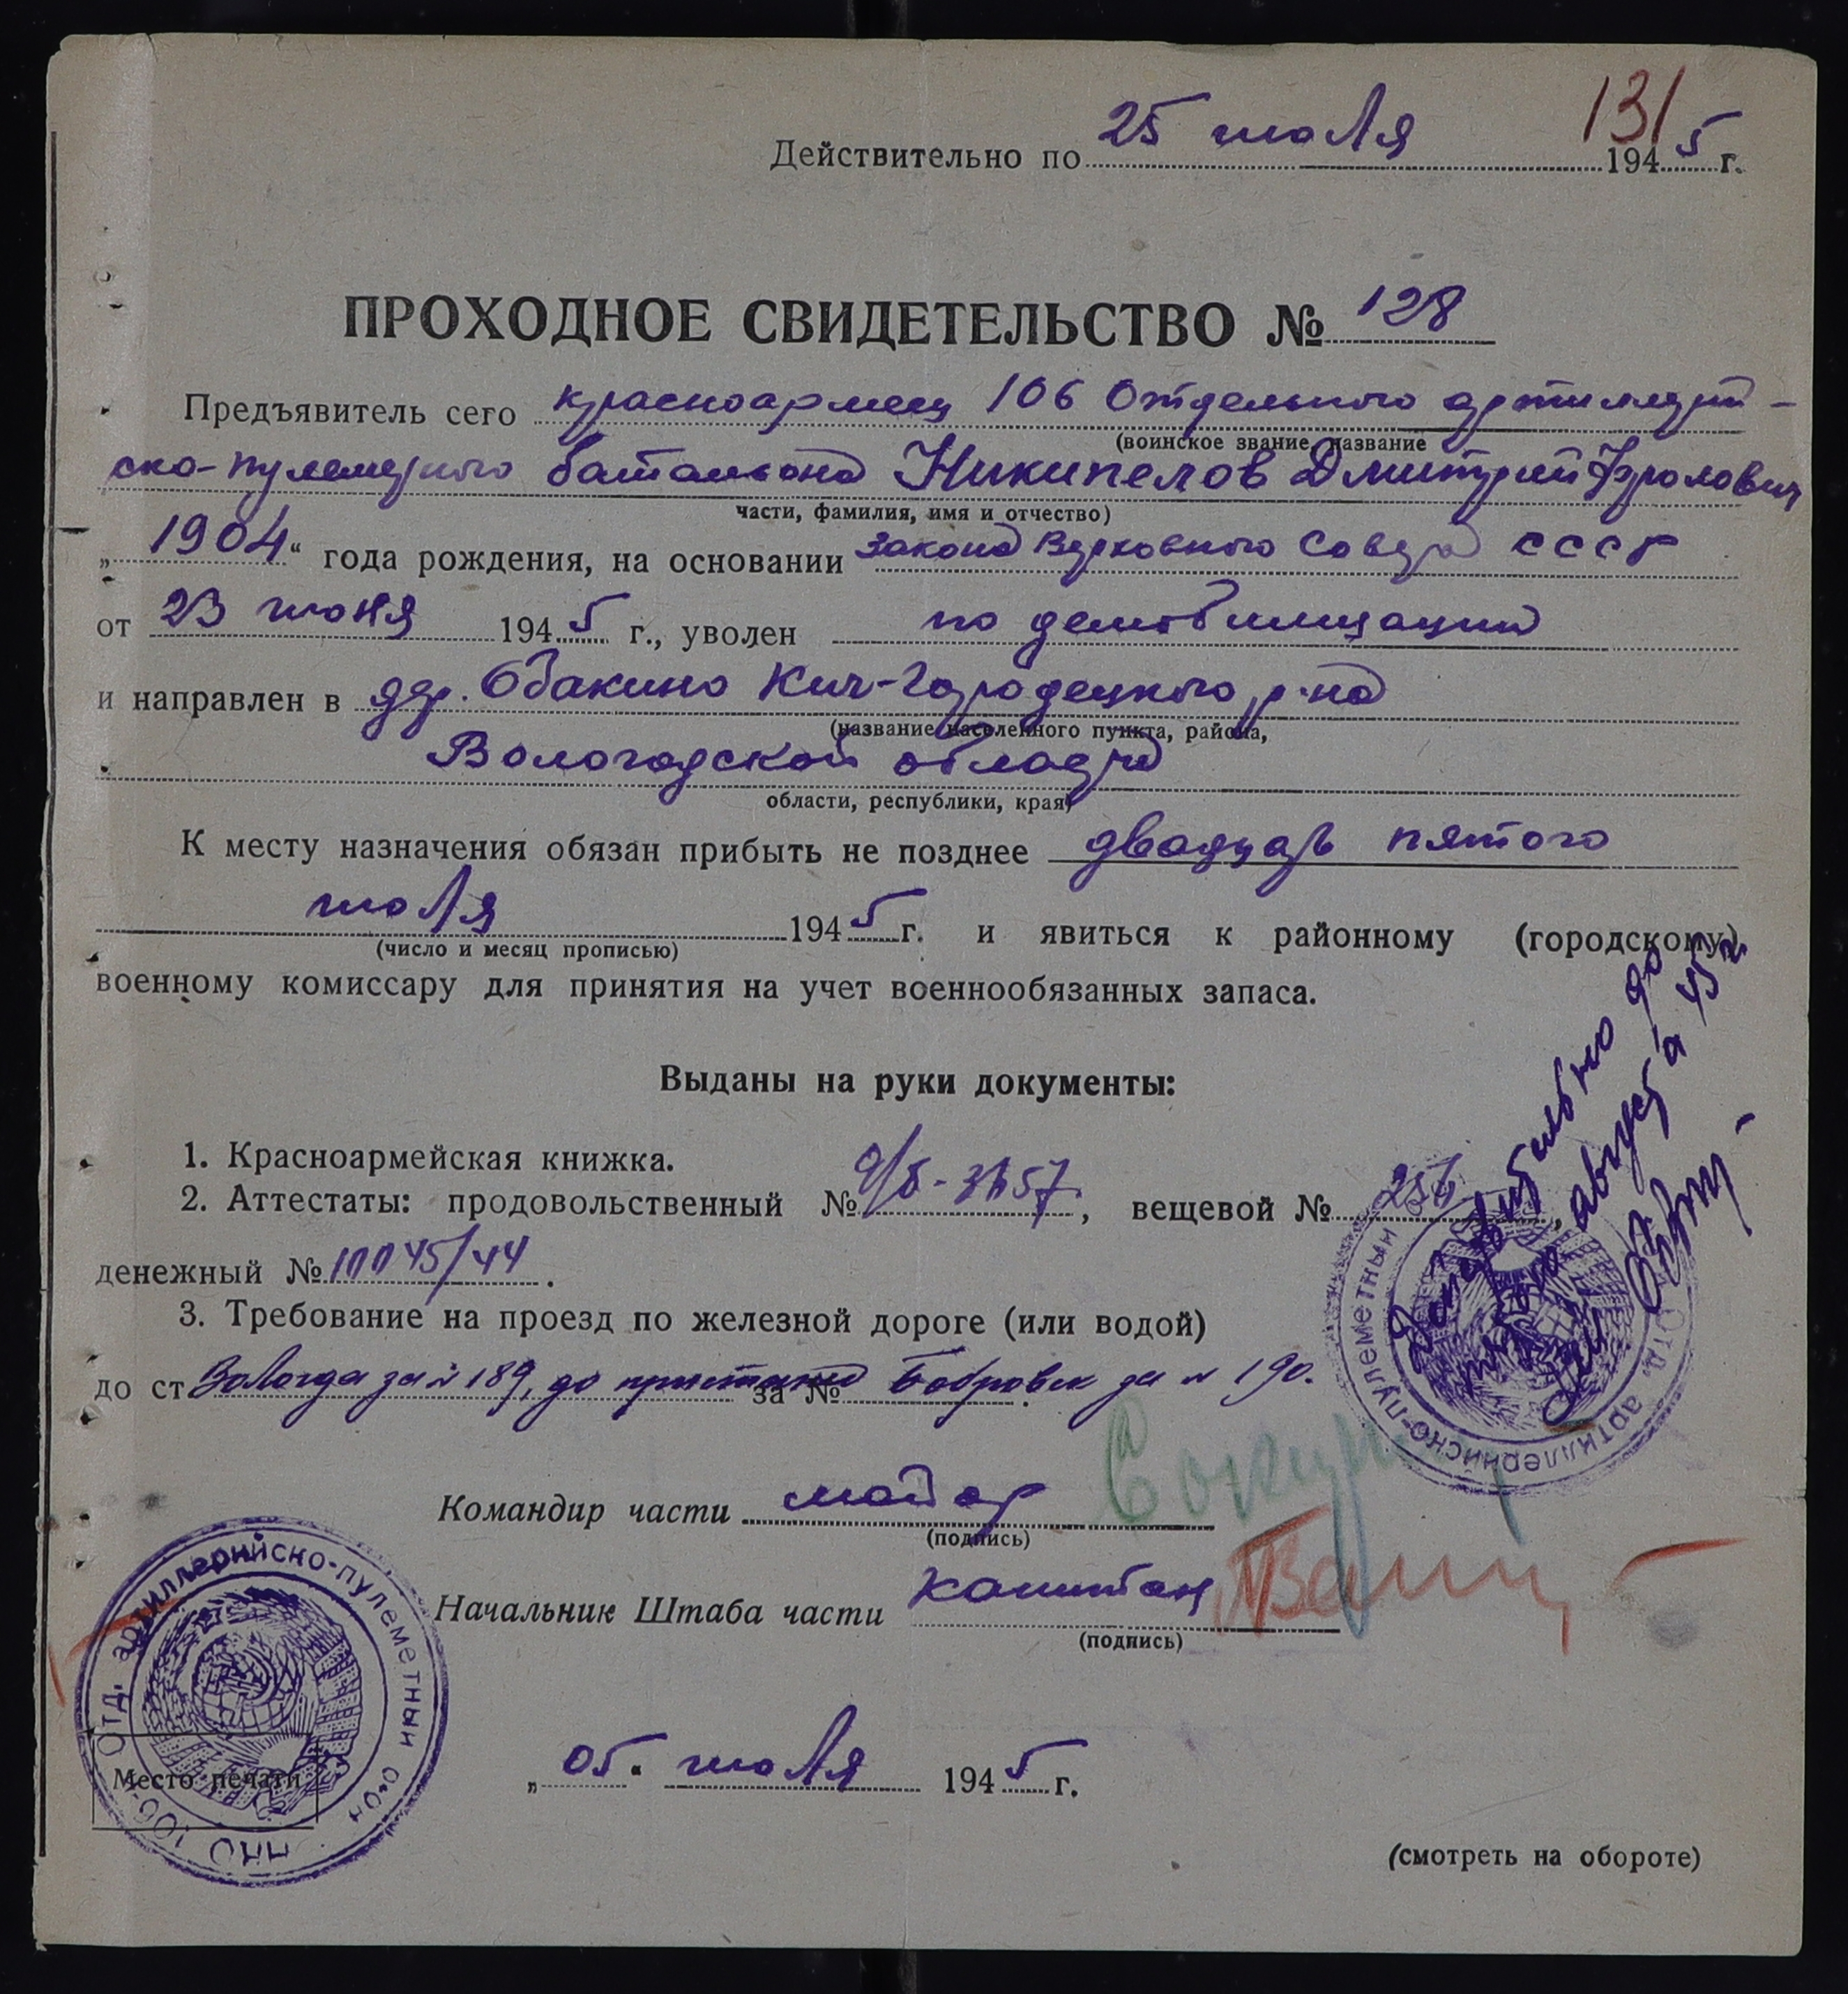 131
Действительно по 25 июля 1945 г.
ПРОХОДНОЕ СВИДЕТЕЛЬСТВО № 128
Предъявитель сего красноармеец 106 Отдельного артиллерий-
(воинское звание, название
ско-пулеметного батальона Никипелов Дмитрий Фролович
части, фамилия, имя и отчество)
„1904“ года рождения, на основании закона Верховного Совета СССР
от 23 июня 1945 г., уволен по демобилизации
и направлен в дер. Обакино Кич-Городецкого р-на
(название населенного пункта, района,
Вологодской области
области, республики, края)
К месту назначения обязан прибыть не позднее двадцать пятого
июля 1945 г. и явиться к районному (городскому)
(число и месяц прописью)
военному комиссару для принятия на учет военнообязанных запаса.
Выданы на руки документы:
1. Красноармейская книжка.
2. Аттестаты: продовольственный №, вещевой №
денежный №
3. Требование на проезд по железной дороге (или водой)
до ст Вологда за № 189, до пристани за № Бобровск за № 190.
Действительно до
августа 45 г.
Отд. артиллерийско-пулеметный
Командир части майор
(подпись)
Начальник Штаба части капитан
(подпись)
НКО 106-Отд. артиллерийско-пулеметный б-он
Место печати
„05“ июля 1945 г.
(смотреть на обороте)